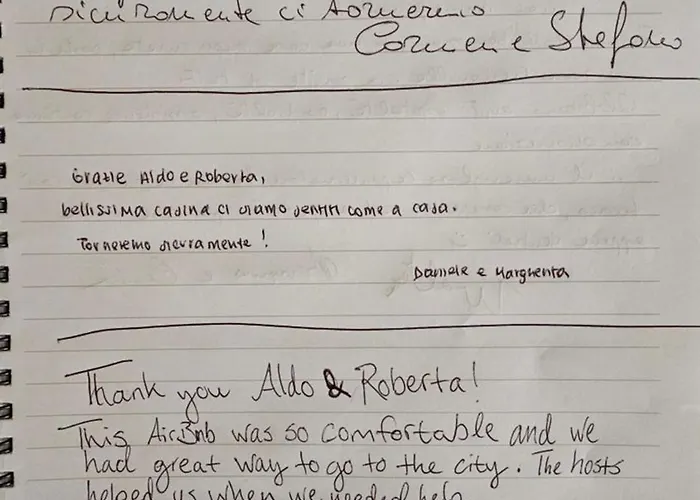 Sicuramente ci torneremo
Carmen e Stefano
Grazie Aldo e Roberta,
bellissima casina ci siamo sentiti come a casa.
Torneremo sicuramente!
Daniele e Margherita
Thank you Aldo & Roberta!
This AirBnb was so comfortable and we
had great way to go to the city. The hosts
helped us when we needed help